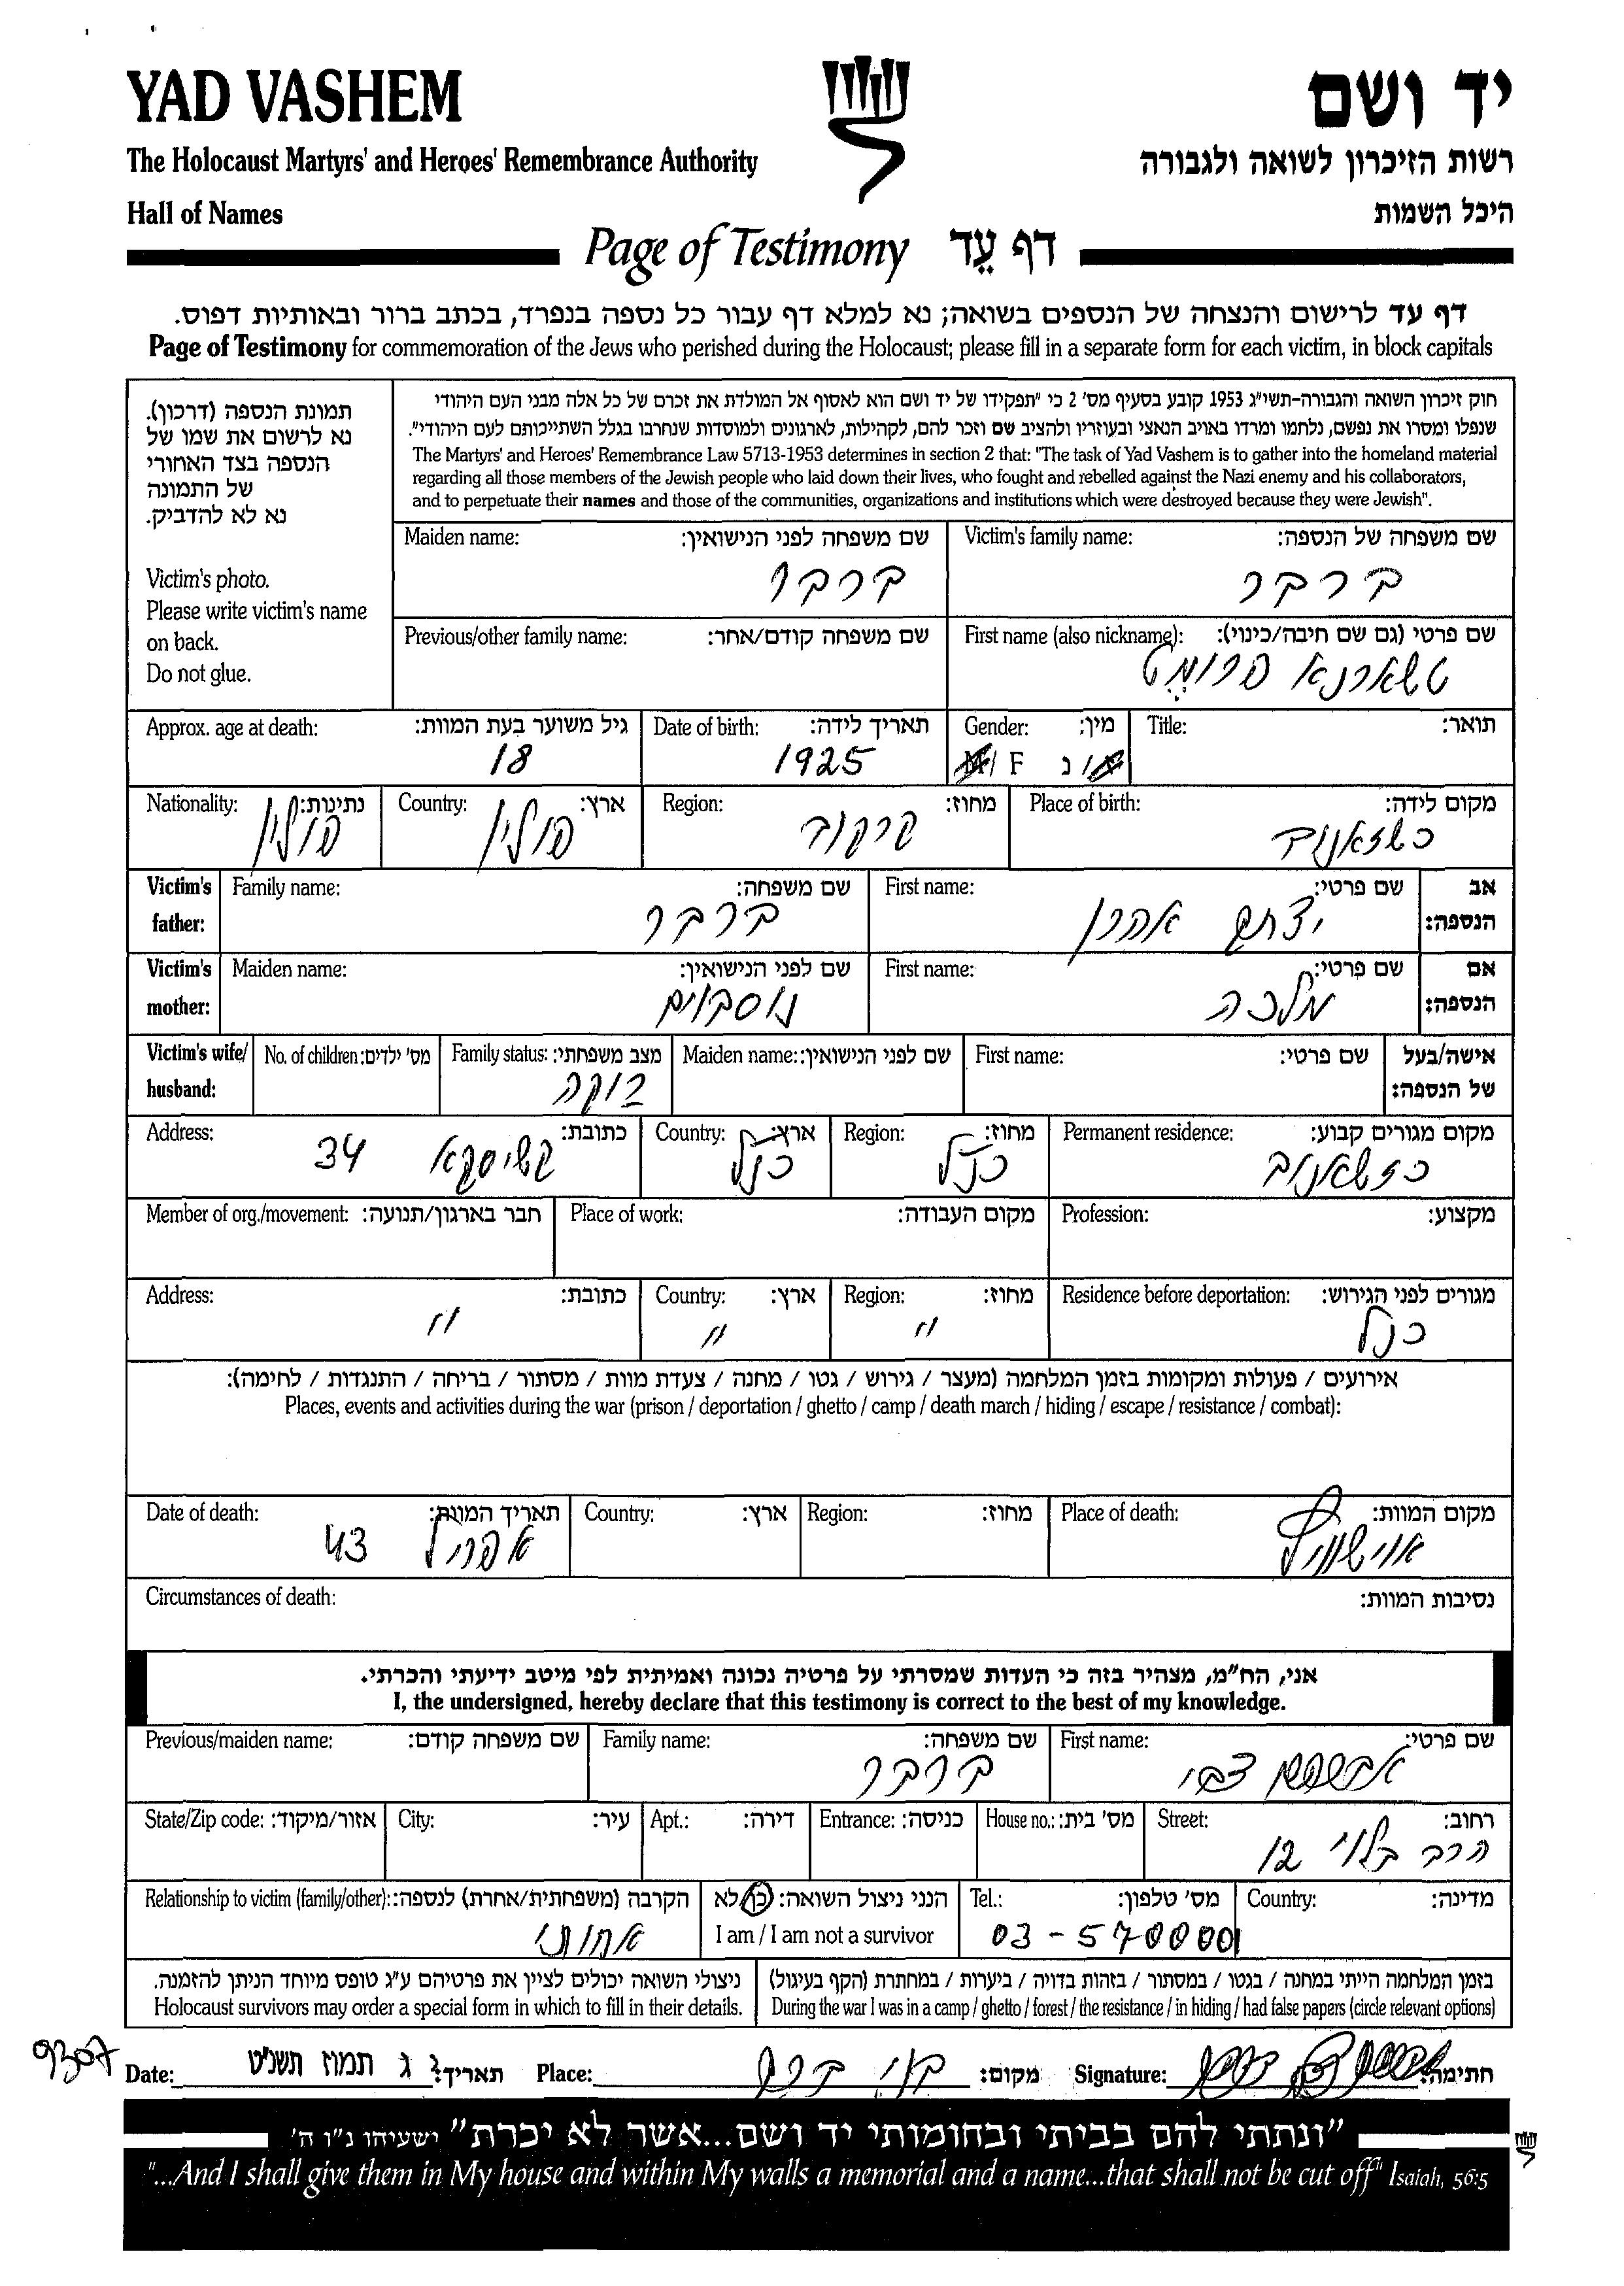 YAD VASHEM
יד ושם
The Holocaust Martyrs' and Heroes' Remembrance Authority
רשות הזיכרון לשואה ולגבורה
Hall of Names
היכל השמות
Page of Testimony דף עֵד
דף עד לרישום והנצחה של הנספים בשואה; נא למלא דף עבור כל נספה בנפרד, בכתב ברור ובאותיות דפוס.
Page of Testimony for commemoration of the Jews who perished during the Holocaust; please fill in a separate form for each victim, in block capitals
תמונת הנספה (דרכון).
נא לרשום את שמו של
הנספה בצד האחורי
של התמונה
נא לא להדביק.
Victim's photo.
Please write victim's name
on back.
Do not glue.
חוק זיכרון השואה והגבורה-תשי"ג 1953 קובע בסעיף מס' 2 כי "תפקידו של יד ושם הוא לאסוף אל המולדת את זכרם של כל אלה מבני העם היהודי
שנפלו ומסרו את נפשם, נלחמו ומרדו באויב הנאצי ובעוזריו ולהציב שם וזכר להם, לקהילות, לארגונים ולמוסדות שנחרבו בגלל השתייכותם לעם היהודי".
The Martyrs' and Heroes' Remembrance Law 5713-1953 determines in section 2 that: "The task of Yad Vashem is to gather into the homeland material
regarding all those members of the Jewish people who laid down their lives, who fought and rebelled against the Nazi enemy and his collaborators,
and to perpetuate their names and those of the communities, organizations and institutions which were destroyed because they were Jewish".
Victim's family name: שם משפחה של הנספה:
ברבר
Maiden name: שם משפחה לפני הנישואין:
ברבר
First name (also nickname): שם פרטי (גם שם חיבה/כינוי):
טשארנא פרומט
Previous/other family name: שם משפחה קודם/אחר:
Title: תואר:
Gender: מין:
M/ F ז/ נ
Date of birth: תאריך לידה:
1925
Approx. age at death: גיל משוער בעת המוות:
18
Place of birth: מקום לידה:
כשזאנוב
Region: מחוז:
קרקוב
Country: ארץ:
פולין
Nationality: נתינות:
פולין
Victim's father: אב הנספה:
First name: שם פרטי:
יצחק אהרן
Family name: שם משפחה:
ברבר
Victim's mother: אם הנספה:
First name: שם פרטי:
מלכה
Maiden name: שם לפני הנישואין:
נוסבוים
Victim's wife/ husband: אישה/בעל של הנספה:
First name: שם פרטי:
Maiden name: שם לפני הנישואין:
Family status: מצב משפחתי:
רווקה
No. of children: מס' ילדים:
Permanent residence: מקום מגורים קבוע:
כזשאנוב
Region: מחוז:
כנ"ל
Country: ארץ:
כנ"ל
Address: כתובת:
34
Profession: מקצוע:
Place of work: מקום העבודה:
Member of org./movement: חבר בארגון/תנועה:
Residence before deportation: מגורים לפני הגירוש:
כנ"ל
Region: מחוז:
"
Country: ארץ:
"
Address: כתובת:
"
אירועים / פעולות ומקומות בזמן המלחמה (מעצר / גירוש / גטו / מחנה / צעדת מוות / מסתור / בריחה / התנגדות / לחימה):
Places, events and activities during the war (prison / deportation / ghetto / camp / death march / hiding / escape / resistance / combat):
Place of death: מקום המוות:
אוישוויץ
Region: מחוז:
Country: ארץ:
Date of death: תאריך המוות:
אפריל 43
Circumstances of death: נסיבות המוות:
אני, הח"מ, מצהיר בזה כי העדות שמסרתי על פרטיה נכונה ואמיתית לפי מיטב ידיעתי והכרתי.
I, the undersigned, hereby declare that this testimony is correct to the best of my knowledge.
First name: שם פרטי:
צבי
Family name: שם משפחה:
ברבר
Previous/maiden name: שם משפחה קודם:
Street: רחוב:
הרב בלוי 12
House no.: מס' בית:
Entrance: כניסה:
Apt.: דירה:
City: עיר:
State/Zip code: אזור/מיקוד:
Country: מדינה:
Tel.: מס' טלפון:
03 - 5700001
הנני ניצול השואה: כן/לא
I am / I am not a survivor
Relationship to victim (family/other): הקרבה (משפחתית/אחרת) לנספה:
אחותי
בזמן המלחמה הייתי במחנה / בגטו / במסתור / בזהות בדויה / ביערות / במחתרת (הקף בעיגול)
During the war I was in a camp / ghetto / forest / the resistance / in hiding / had false papers (circle relevant options)
ניצולי השואה יכולים לציין את פרטיהם ע"ג טופס מיוחד הניתן להזמנה.
Holocaust survivors may order a special form in which to fill in their details.
9307
Date: ג תמוז תשנ"ט תאריך: Place: בני ברק מקום: Signature: חתימה:
"ונתתי להם בביתי ובחומותי יד ושם...אשר לא יכרת" ישעיהו נ"ו ה'
"...And I shall give them in My house and within My walls a memorial and a name...that shall not be cut off" Isaiah, 56:5